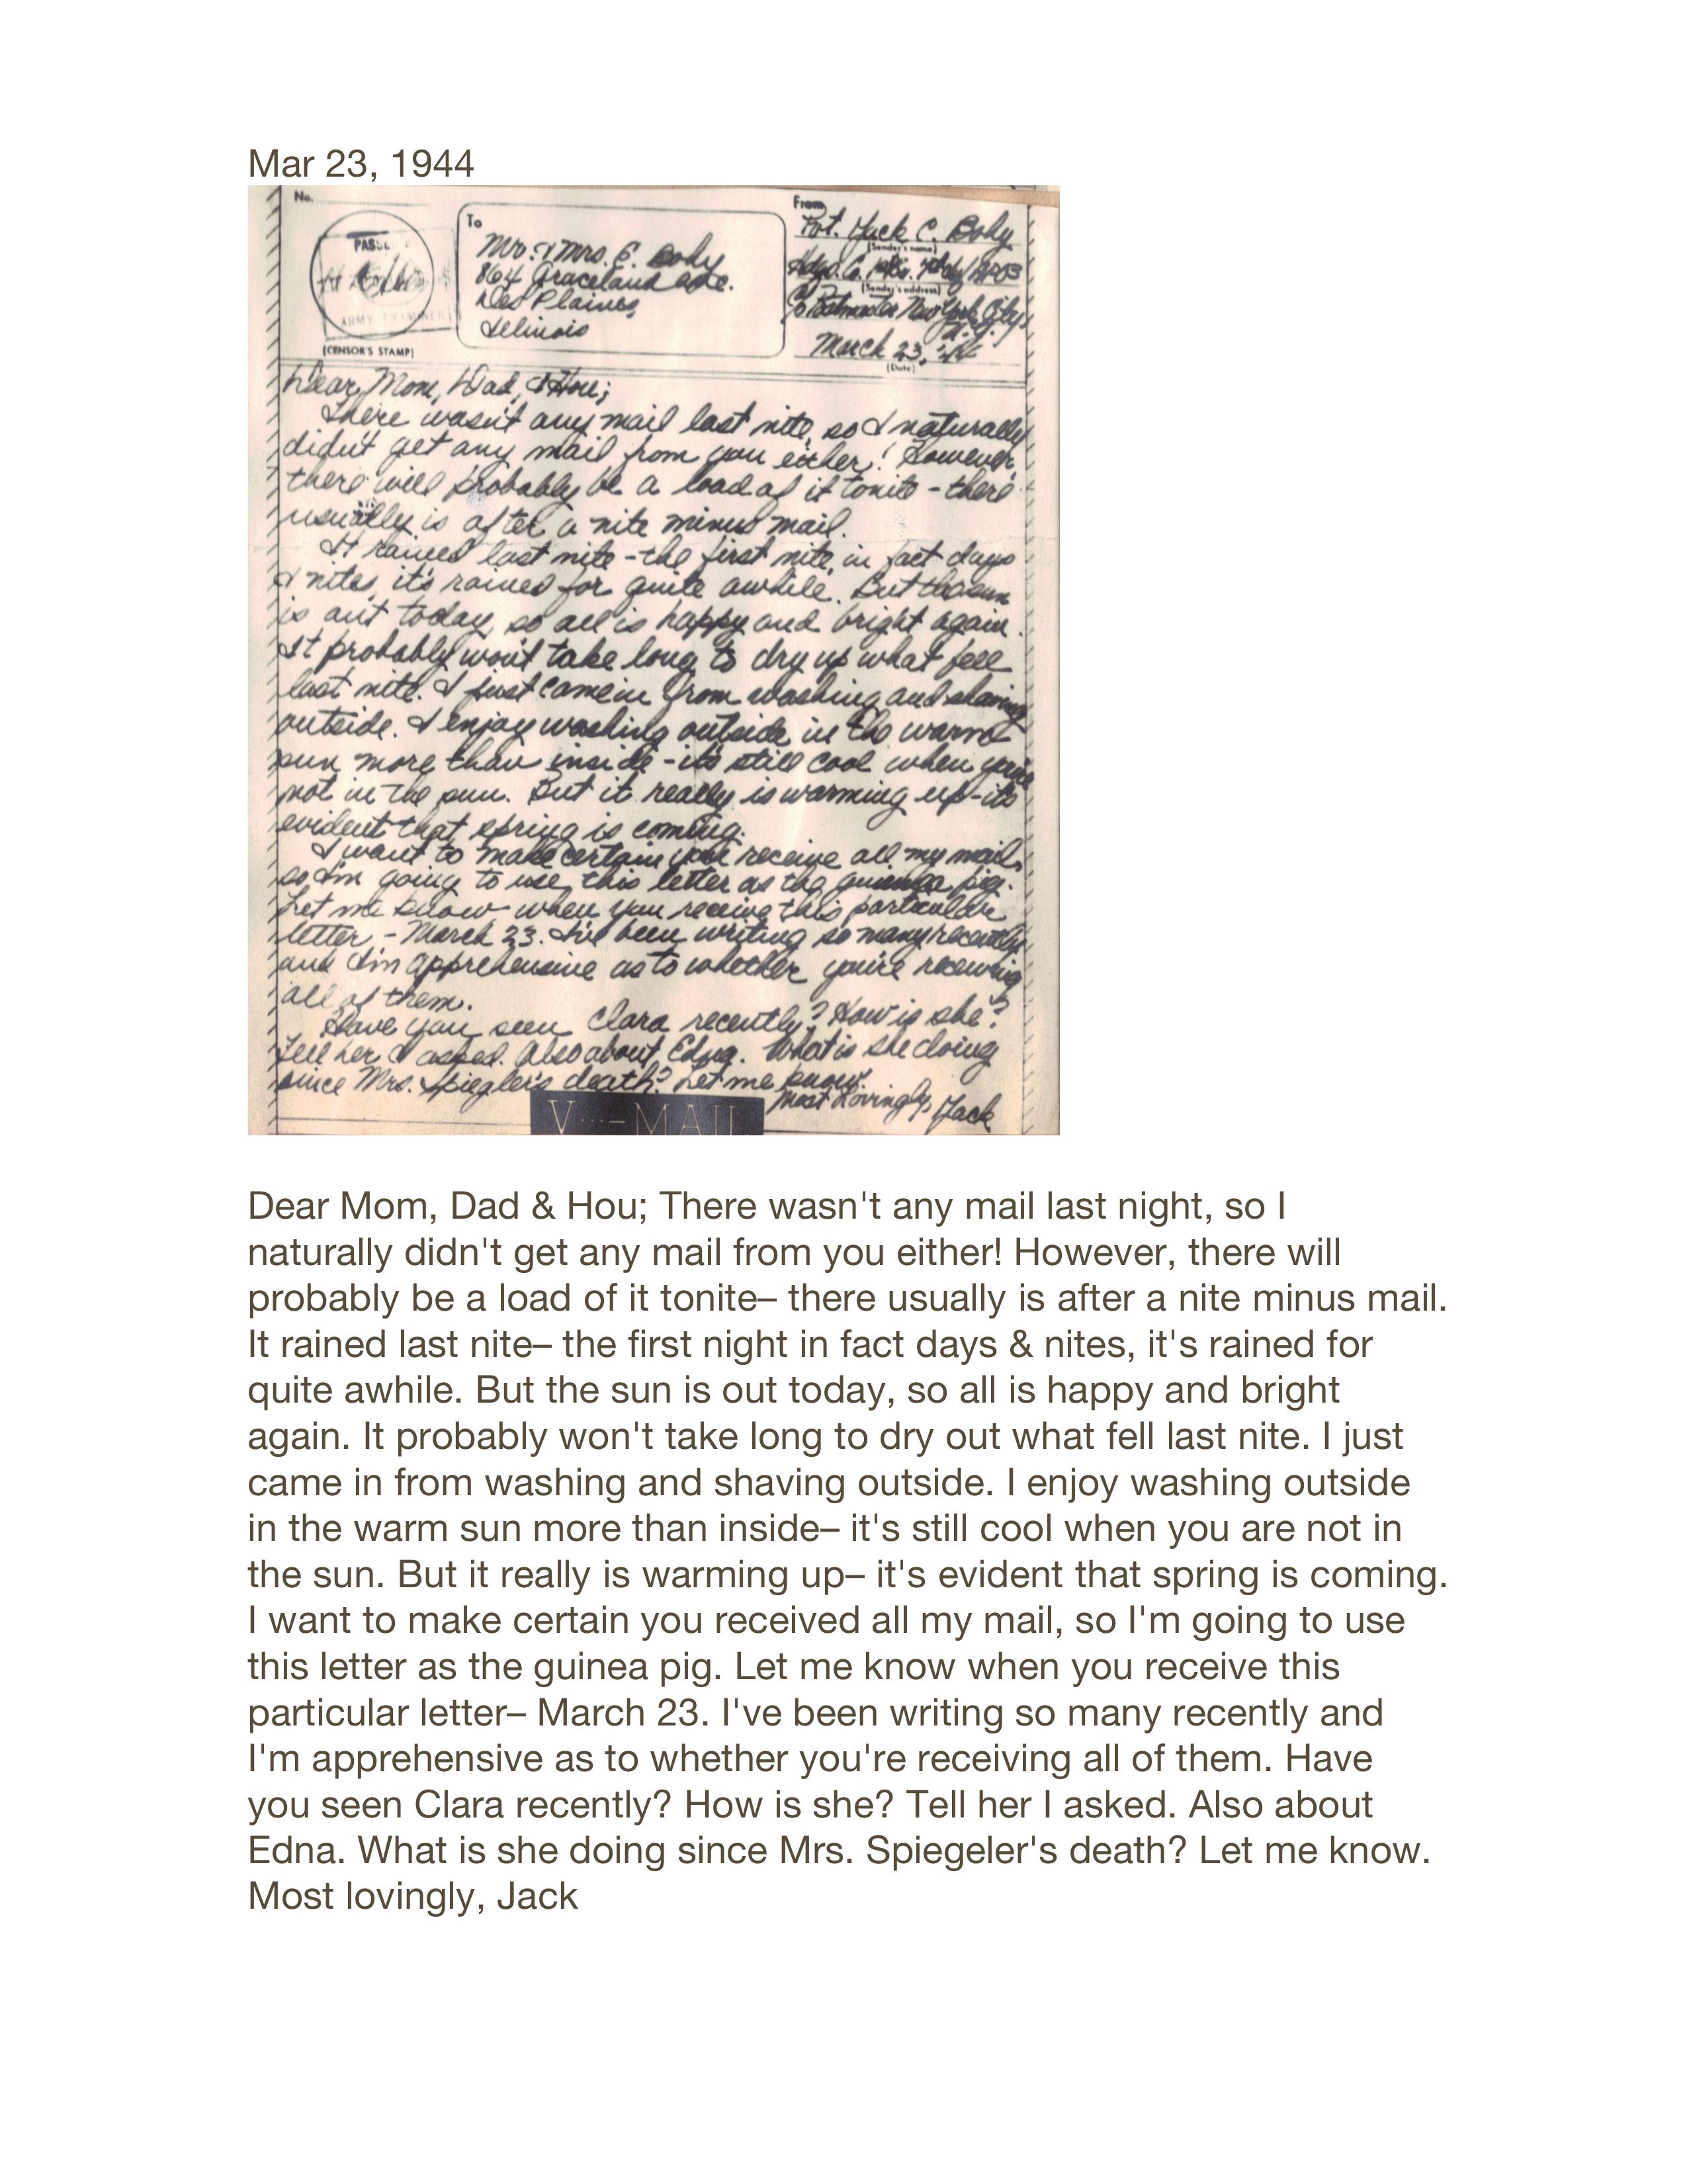 Mar 23, 1944
No.
To
From
Mr. & Mrs. E. Body
864 Graceland Ave.
Des Plaines,
Illinois
Pvt. Jack C. Body
(Sender's name)
Hdqs. Co. 1st Bn. 7th Inf
(Sender's address)
c/o Postmaster New York City,
N.Y.
March 23, '44
(Date)
PASSE
ARMY EXAMINER
(CENSOR'S STAMP)
Dear Mom, Dad, & Hou;
There wasn't any mail last nite, so I naturally
didn't get any mail from you either! However,
there will probably be a load of it tonite - there
usually is after a nite minus mail.
It rained last nite - the first nite, in fact days
& nites, it's rained for quite awhile. But the sun
is out today, so all is happy and bright again.
It probably won't take long to dry up what fell
last nite. I just came in from washing and shaving
outside. I enjoy washing outside in the warm
sun more than inside - it's still cool when you're
not in the sun. But it really is warming up - it's
evident that spring is coming.
I want to make certain you receive all my mail,
so I'm going to use this letter as the guienea pig.
Let me know when you receive this particular
letter - March 23. I've been writing so many recently
and I'm apprehensive as to whether you're receiving
all of them.
Have you seen Clara recently? How is she?
Tell her I asked. Also about Edna. What is she doing
since Mrs. Spiegler's death? Let me know.
Most Lovingly, Jack
V···-MAIL
Dear Mom, Dad & Hou; There wasn't any mail last night, so I
naturally didn't get any mail from you either! However, there will
probably be a load of it tonite– there usually is after a nite minus mail.
It rained last nite– the first night in fact days & nites, it's rained for
quite awhile. But the sun is out today, so all is happy and bright
again. It probably won't take long to dry out what fell last nite. I just
came in from washing and shaving outside. I enjoy washing outside
in the warm sun more than inside– it's still cool when you are not in
the sun. But it really is warming up– it's evident that spring is coming.
I want to make certain you received all my mail, so I'm going to use
this letter as the guinea pig. Let me know when you receive this
particular letter– March 23. I've been writing so many recently and
I'm apprehensive as to whether you're receiving all of them. Have
you seen Clara recently? How is she? Tell her I asked. Also about
Edna. What is she doing since Mrs. Spiegeler's death? Let me know.
Most lovingly, Jack